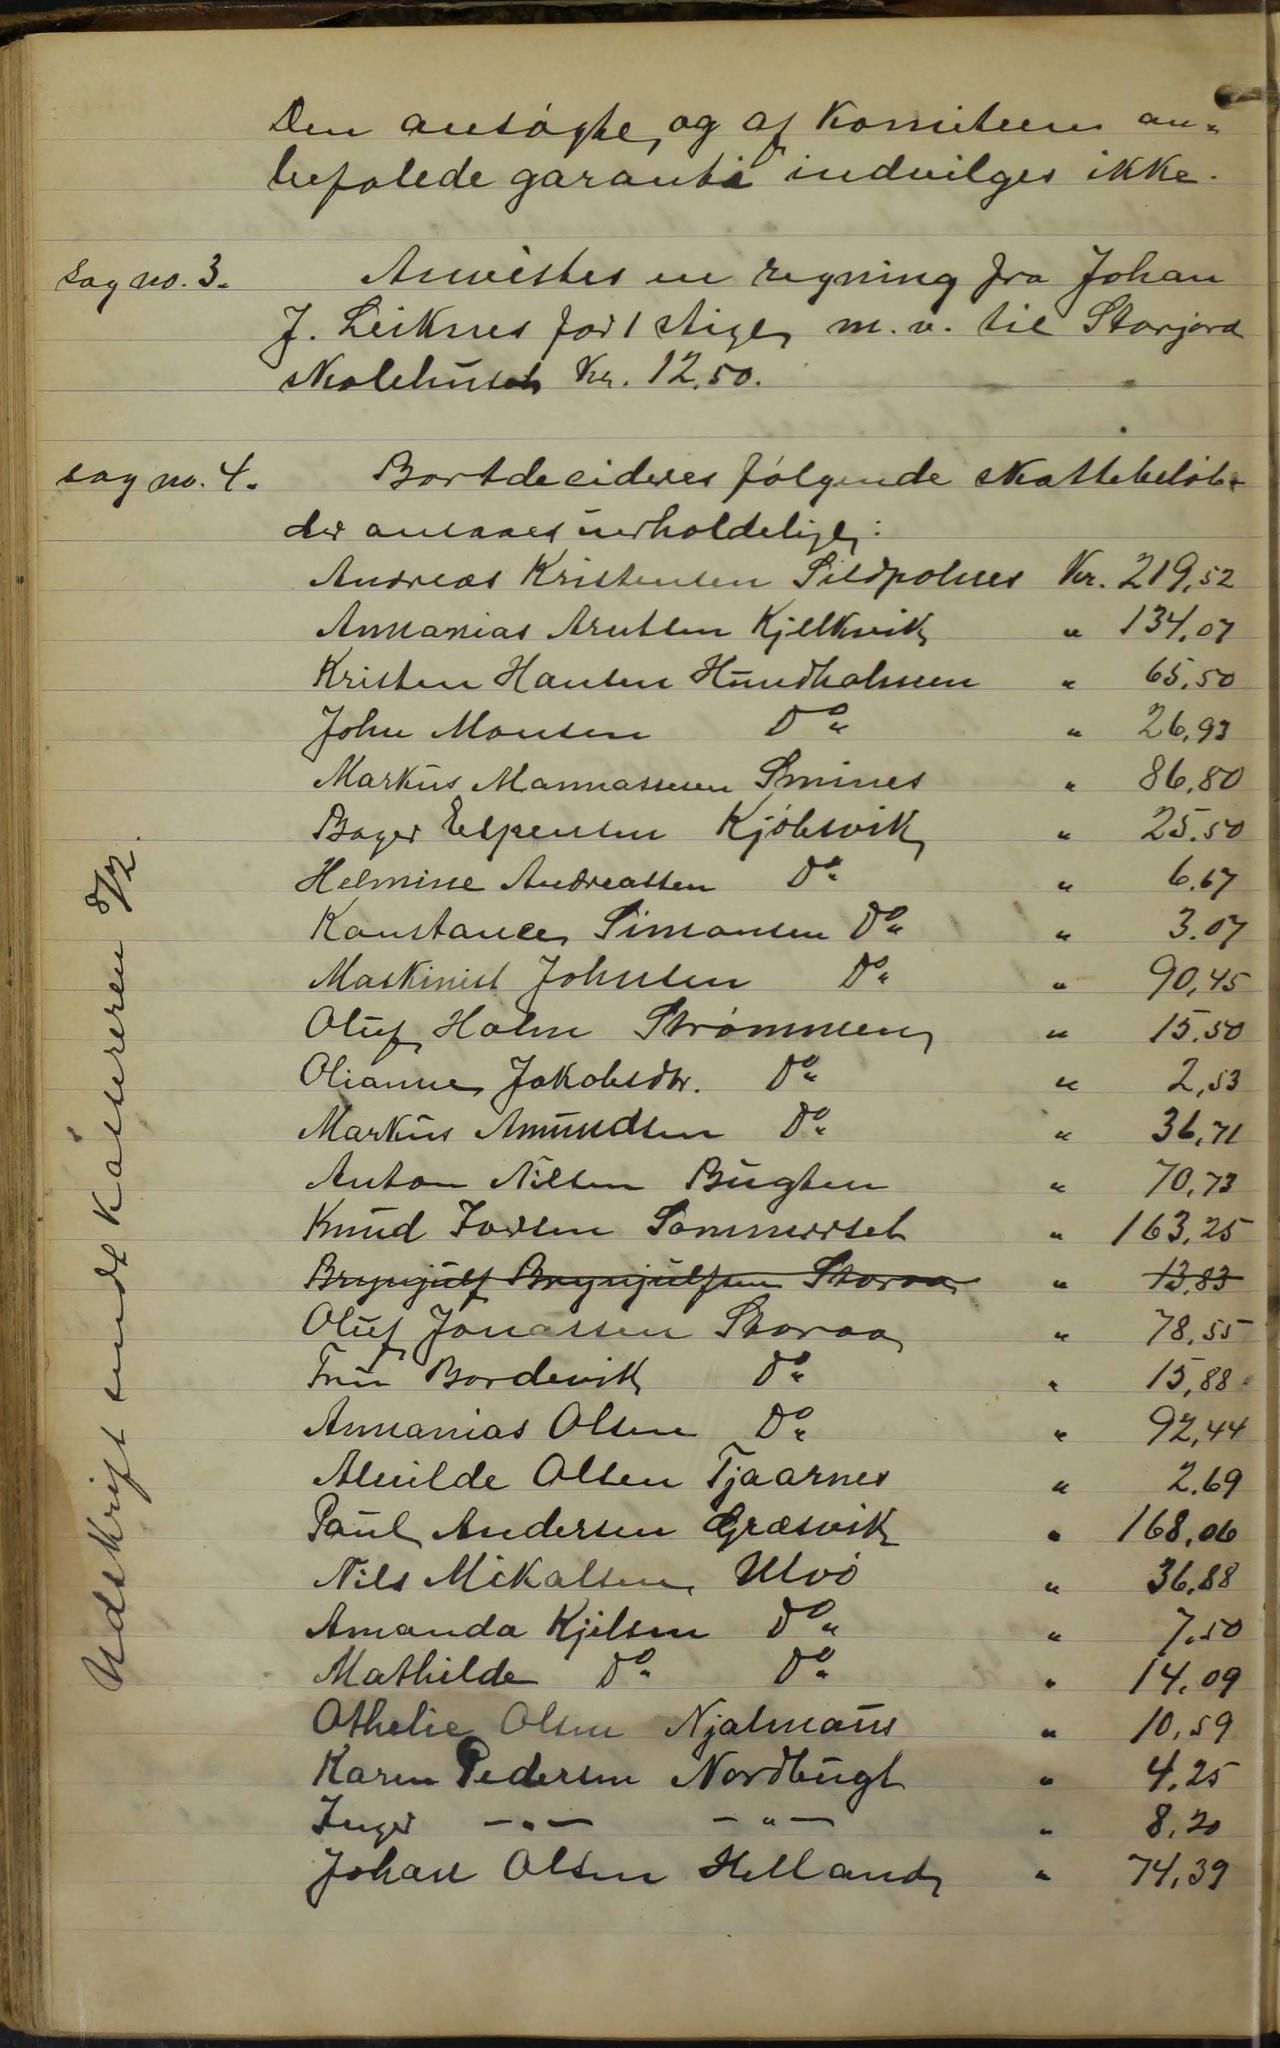 Den ansøgte, og af Komiteen an-
befalede garanti indvilges ikke.
Sag no. 3. Anvistes en regning fra Johan
J. Leiknes for 1 stige m. v. til Storjord
skolehuset Kr. 12,50.
sag no. 4. Bortdecideres følgende skattebeløb
der ansaaes uerholdelige:
Andreas Kristensen Sildpolnes Kr. 219,52
Annanias Arntsen Kjelkvik " 134,07
Kristen Hansen Hundholmen " 65,50
John Monsen Do " 26,93
Markus Mannassesen Smines " 86,80
Bager Espensen Kjøbsvik " 25.50
Helmine Andreassen Do " 6.67
Konstance Simonsen Do " 3.07
Maskinist Johnsen Do " 90,45
Oluf Holm Strømmen " 15.50
Olianne Jakobsdtr. Do " 2,53
Markus Amundsen Do " 36,71
Anton Nilsen Bugten " 70,73
Knud Iversen Sommerset " 163,25
Brynjulf Brynjulfsen Storaa " 13,83
Oluf Jonassen Storaa " 78,55
Fru Bordevik Do " 15,88
Annanias Olsen Do " 92,44
Alvilde Olsen Tjaarnes " 2.69
Paul Andersen Græsvik " 168,06
Nils Mikalsen Ulvø " 36.88
Amanda Kjelsen Do " 7.50
Mathilde Do Do " 14,09
Othelie Olsen Njalmaus " 10,59
Karen Pedersen Nordbugt " 4.25
Inger -"- -"- " 8,20
Johan Olsen Helland " 74,39
Udskrift sendt Kassereren 8/2.